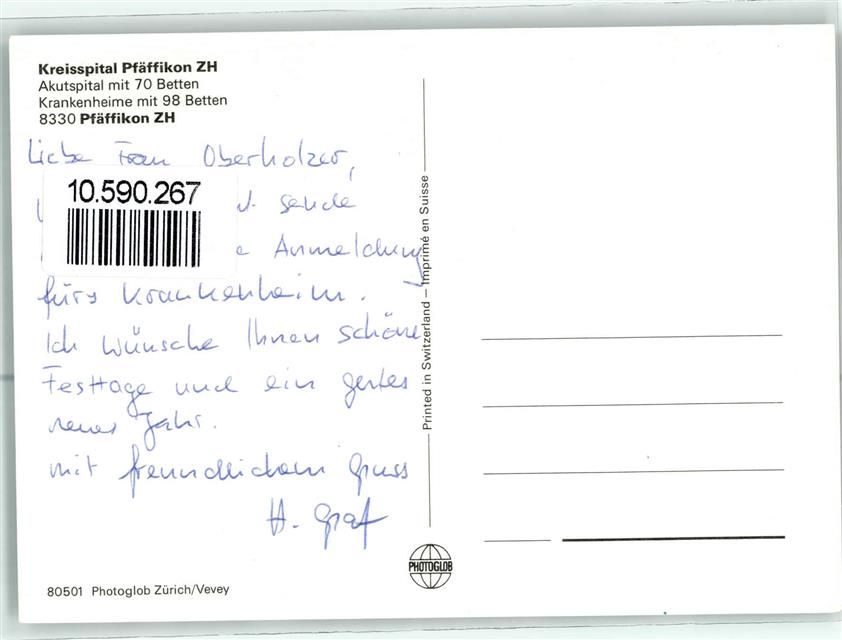 Kreisspital Pfäffikon ZH
Akutspital mit 70 Betten
Krankenheime mit 98 Betten
8330 Pfäffikon ZH
Liebe Frau Oberholzer,
10.590.267
sende
Anmeldung
fürs Krankenheim.
Ich wünsche Ihnen schöne
Festtage und ein gutes
neues Jahr.
mit freundlichem Gruss
H. Graf
Printed in Switzerland – Imprimé en Suisse
PHOTOGLOB
80501 Photoglob Zürich/Vevey